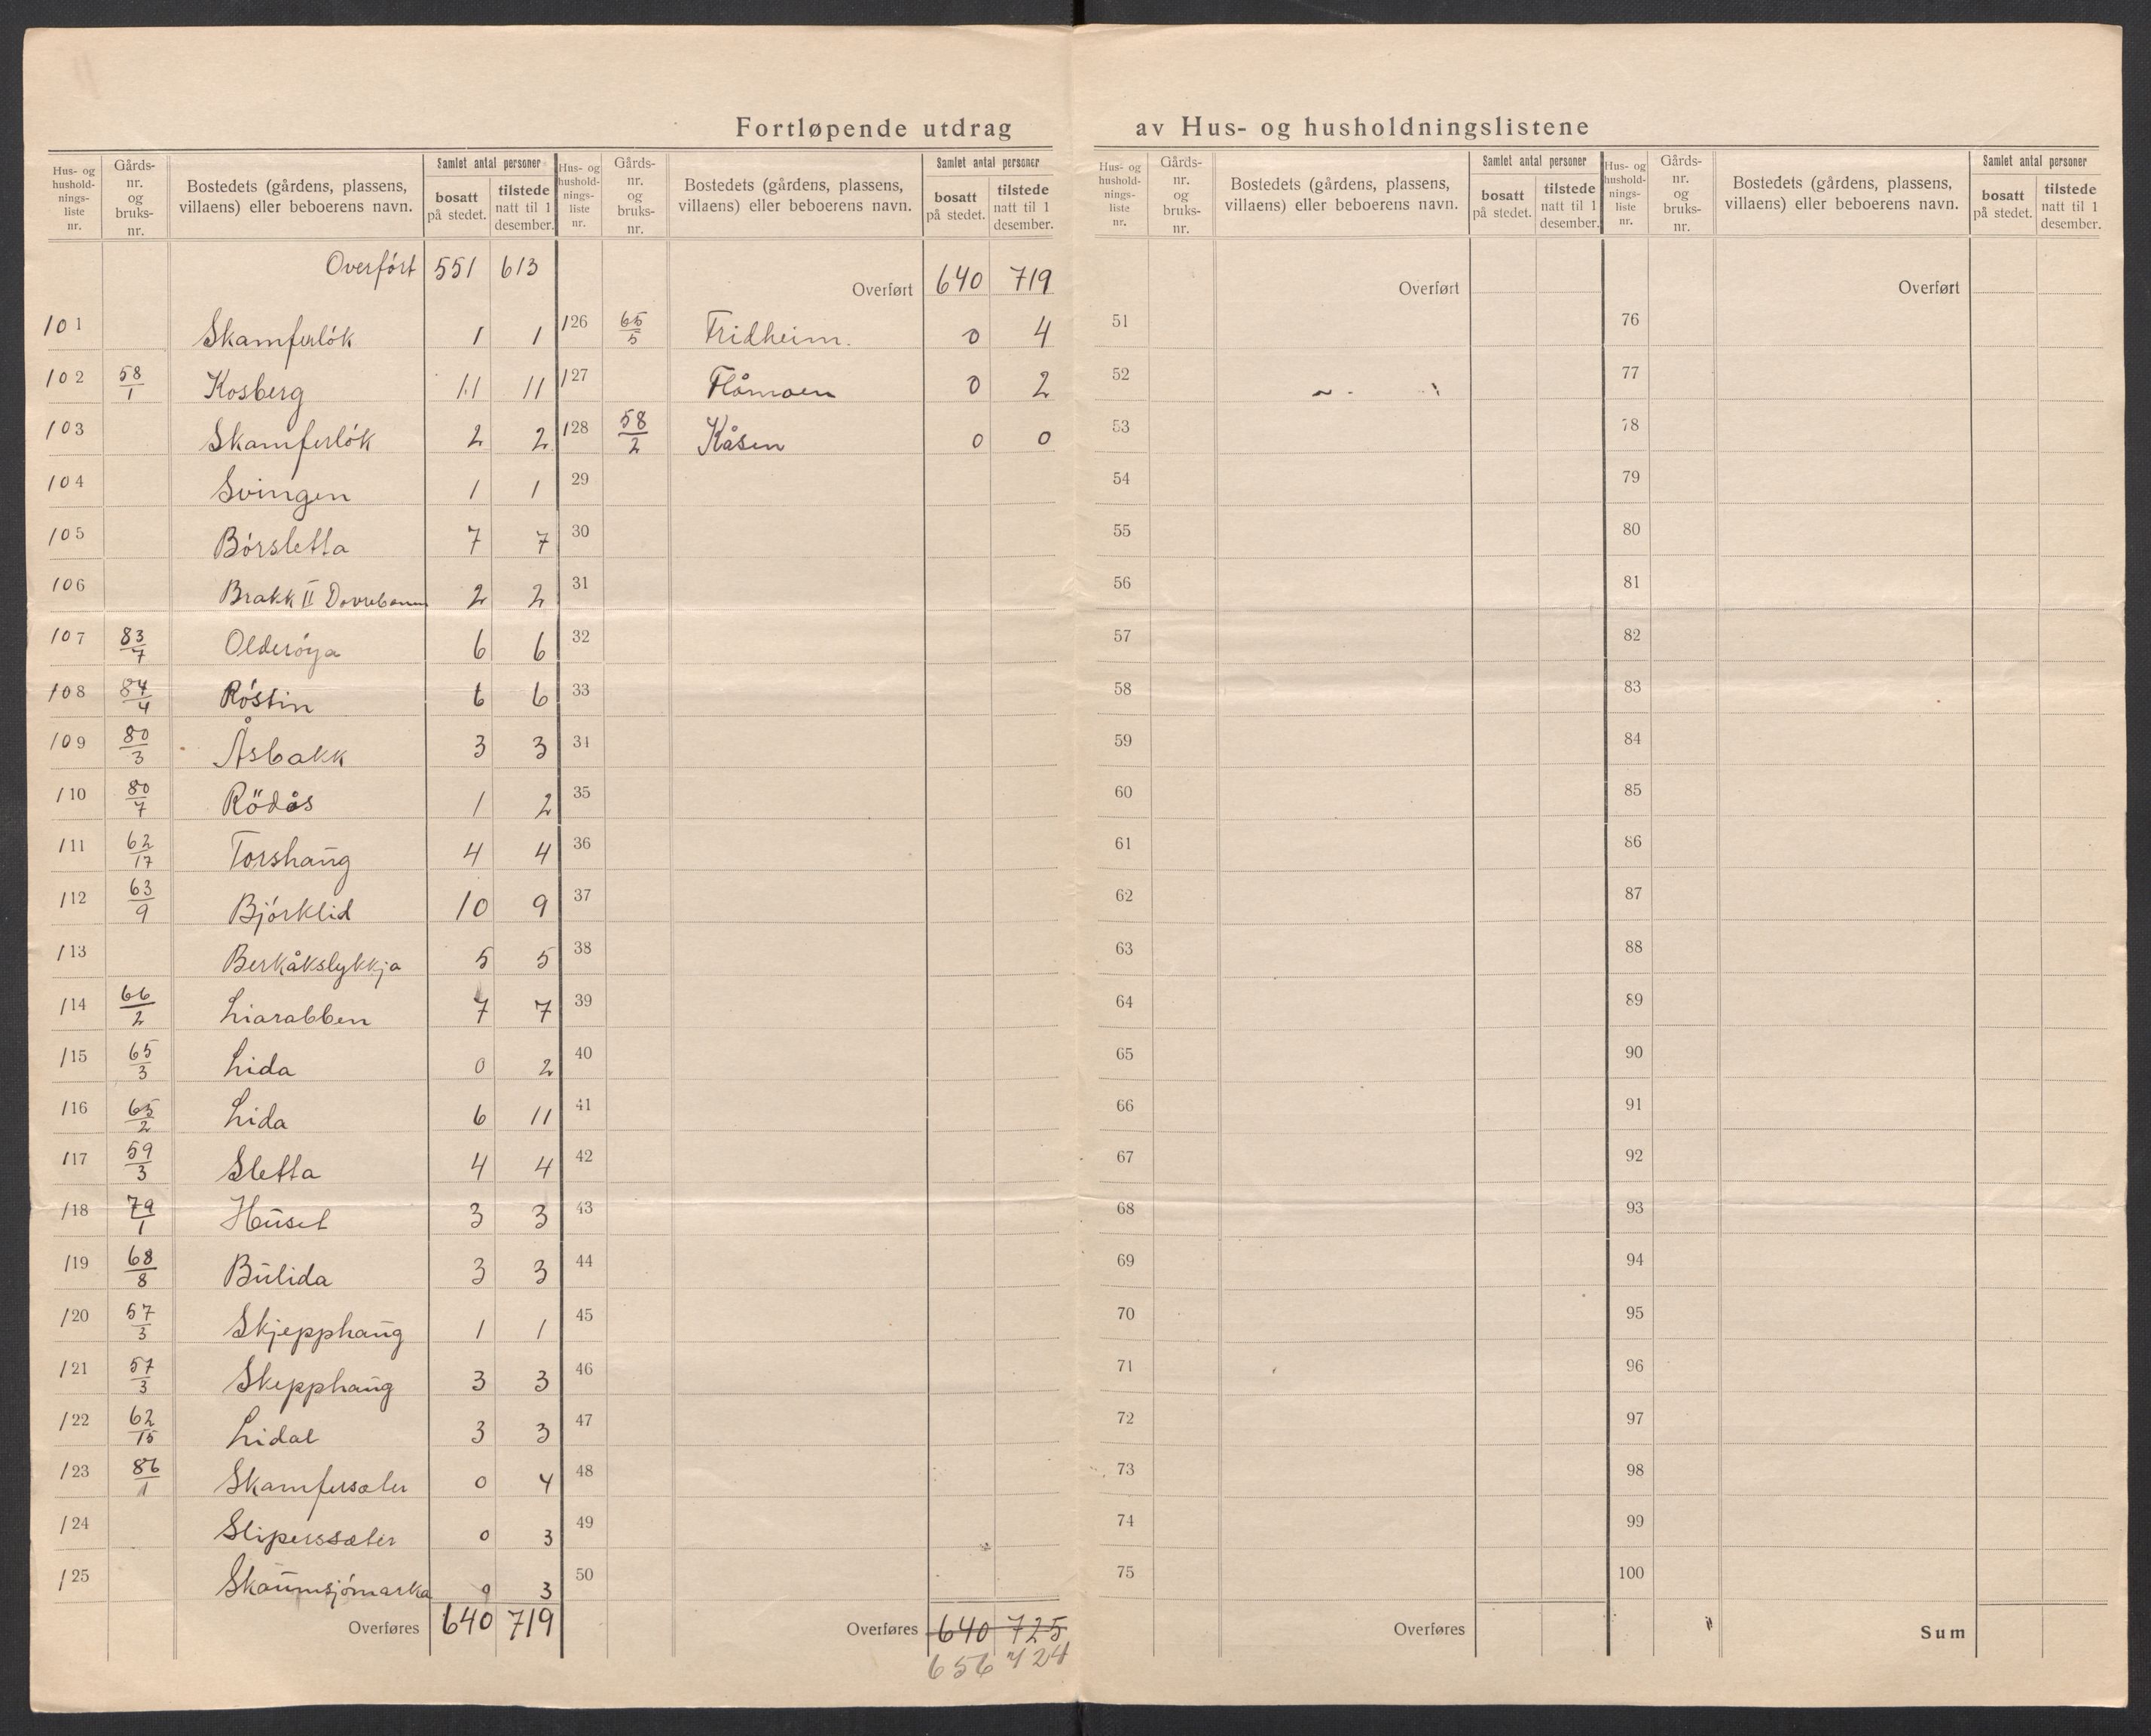 Fortløpende utdrag av Hus- og husholdningslistene
Hus- og hushold-nings-liste nr. | Gårds-nr. og bruks-nr. | Bostedets (gårdens, plassens, villaens) eller beboerens navn. | Samlet antal personer | bosatt på stedet. | tilstede natt til 1 desember.
Overført 551 613
101 Skamferløk 1 1
102 58/1 Kosberg 11 11
103 Skamferløk 2 2
104 Svingen 1 1
105 Børsletta 7 7
106 Brakk II Dovrebanen 2 2
107 83/7 Olderøya 6 6
108 84/4 Røstin 6 6
109 80/3 Åsbakk 3 3
110 80/7 Rödås 1 2
111 62/17 Torshaug 4 4
112 63/9 Bjørklid 10 9
113 Berkåkslykkja 5 5
114 66/2 Liarabben 7 7
115 65/3 Lida 0 2
116 65/2 Lida 6 11
117 59/3 Sletta 4 4
118 79/1 Huset 3 3
119 68/8 Bulida 3 3
120 57/3 Skjepphaug 1 1
121 57/3 Skepphaug 3 3
122 62/15 Lidal 3 3
123 86/1 Skamfersæter 0 4
124 Sliperssæter 0 3
125 Skaumsjømarka 0 3
Overføres 640 719
Hus- og hushold-nings-liste nr. | Gårds-nr. og bruks-nr. | Bostedets (gårdens, plassens, villaens) eller beboerens navn. | Samlet antal personer | bosatt på stedet. | tilstede natt til 1 desember.
Overført 640 719
126 65/5 Fridheim. 0 4
127 Flåmoen 0 2
128 58/2 Kåsen 0 0
29
30
31
32
33
34
35
36
37
38
39
40
41
42
43
44
45
46
47
48
49
50
Overføres 640 725
656 724
Hus- og hushold-nings-liste nr. | Gårds-nr. og bruks-nr. | Bostedets (gårdens, plassens, villaens) eller beboerens navn. | Samlet antal personer | bosatt på stedet. | tilstede natt til 1 desember.
Overført
51
52
53
54
55
56
57
58
59
60
61
62
63
64
65
66
67
68
69
70
71
72
73
74
75
Overføres
Hus- og hushold-nings-liste nr. | Gårds-nr. og bruks-nr. | Bostedets (gårdens, plassens, villaens) eller beboerens navn. | Samlet antal personer | bosatt på stedet. | tilstede natt til 1 desember.
Overført
76
77
78
79
80
81
82
83
84
85
86
87
88
89
90
91
92
93
94
95
96
97
98
99
100
Sum